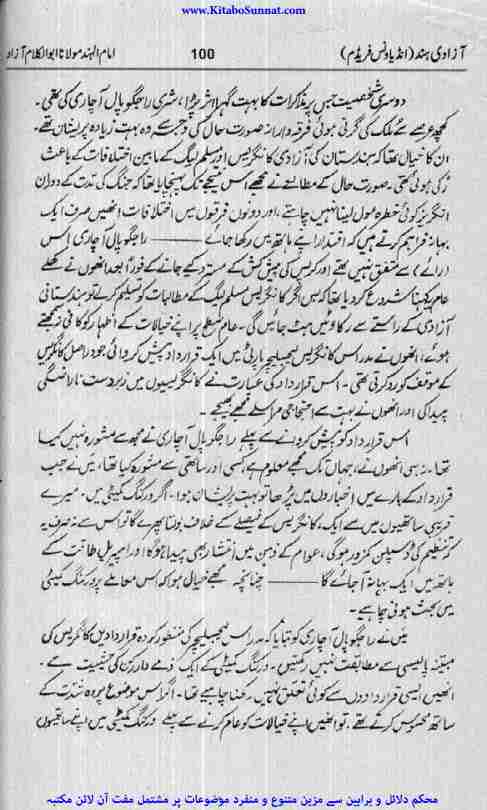 www.KitaboSunnat.com
آزادی ہند (انڈیا ونس فریڈم) 100 امام الہند مولانا ابوالکلام آزاد
دوسری شخصیت جس پر مذاکرات کا بہت گہرا اثر پڑا، شری راجگوپال آچاری کی تھی۔
کچھ عرصے سے ملک کی گرتی ہوئی فرقہ وارانہ صورت حال کی وجہ سے وہ بہت زیادہ پریشان تھے۔
ان کا خیال تھا کہ ہندستان کی آزادی کانگریس اور مسلم لیگ کے مابین اختلافات کے باعث
رکی ہوئی تھی۔ صورت حال کے مطالعے نے مجھے اس نتیجے تک پہنچایا تھا کہ جنگ کی مدت کے دوران
انگریز کوئی خطرہ مول لینا نہیں چاہتے، اور دونوں فرقوں میں اختلافات انھیں صرف ایک
بہانہ فراہم کرتے ہیں کہ اقتدار اپنے ہاتھ میں رکھا جائے ——— راجگوپال آچاری اس
(رائے) سے متفق نہیں تھے اور کرپس کی پیش کش کے مسترد کیے جانے کے فوراً بعد انھوں نے کھلے
عام یہ کہنا شروع کر دیا تھا کہ بس اگر کانگریس مسلم لیگ کے مطالبات کو تسلیم کر لے تو ہندستانی
آزادی کے راستے سے رکاوٹیں ہٹ جائیں گی۔ عام سطح پر اپنے خیالات کے اظہار کو کافی نہ سمجھتے
ہوئے، انھوں نے مدراس کانگریس لیجسلیچر پارٹی میں ایک قرارداد پیش کروائی جو دراصل کانگریس
کے موقف کو رد کرتی تھی۔ اس قرارداد کی عبارت نے کانگریسیوں میں زبردست ناراضگی
پیدا کی اور انھوں نے بہت سے احتجاجی مراسلے مجھے بھیجے۔
اس قرارداد کو پیش کروانے سے پہلے راجگوپال آچاری نے مجھ سے مشورہ نہیں کیا
تھا۔ نہ ہی انھوں نے، جہاں تک مجھے معلوم ہے، کسی اور ساتھی سے مشورہ کیا تھا، میں نے جب
قرارداد کے بارے میں اخباروں میں پڑھا تو بہت پریشان ہوا۔ اگر ورکنگ کمیٹی میں، میرے
قریبی ساتھیوں میں سے ایک، کانگریس کے فیصلے کے خلاف بولتا پھرے گا تو اس سے نہ صرف یہ
کہ تنظیم کی ڈسپلن کمزور ہوگی، عوام کے ذہن میں انتشار بھی پیدا ہوگا اور امپیریل طاقت کے
ہاتھ میں ایک بہانہ آ جائے گا ——— چنانچہ مجھے خیال ہوا کہ اس معاملے پر ورکنگ کمیٹی
میں بحث ہونی چاہیے۔
میں نے راجگوپال آچاری کو بتایا کہ مدراس لیجسلیچر کی منظور کردہ قراردادیں کانگریس کی
مبینہ پالیسی سے مطابقت نہیں رکھتیں۔ ورکنگ کمیٹی کے ایک ذمے دار رکن کی حیثیت سے،
انھیں ایسی قراردادوں سے کوئی تعلق نہیں رکھنا چاہیے تھا۔ اگر اس موضوع پر وہ شدت کے
ساتھ محسوس کرتے تھے، تو انھیں اپنے خیالات کو عام کرنے سے پہلے ورکنگ کمیٹی میں اپنے ساتھیوں
محکم دلائل و براہین سے مزین متنوع و منفرد موضوعات پر مشتمل مفت آن لائن مکتبہ